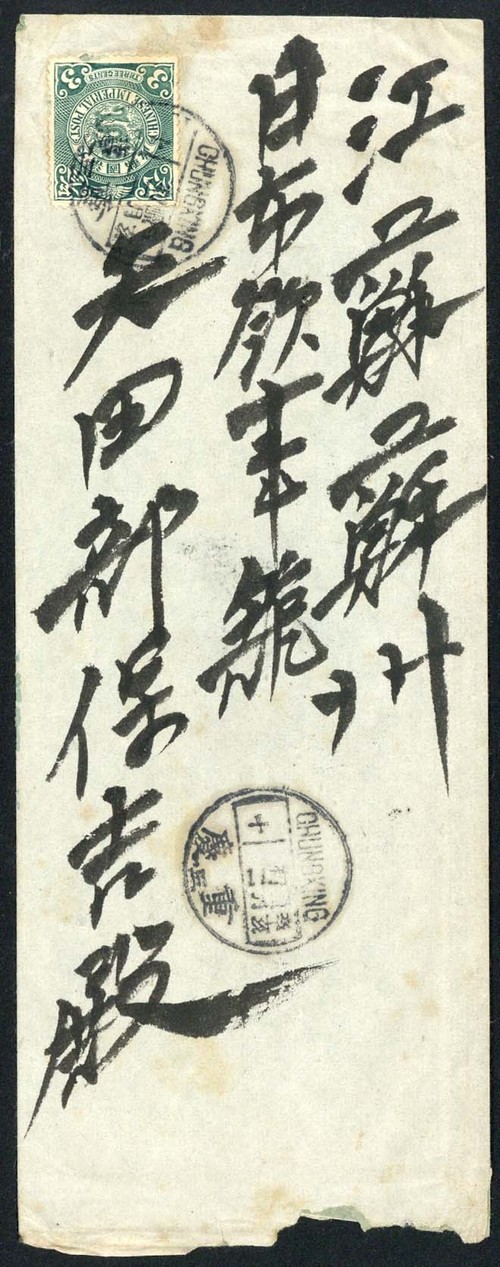 江蘇蘇州
日本領事館
矢田部保吉殿
CHINESE IMPERIAL POST
3 THREE CENTS 3
CHUNGKING
CHUNGKING
重慶